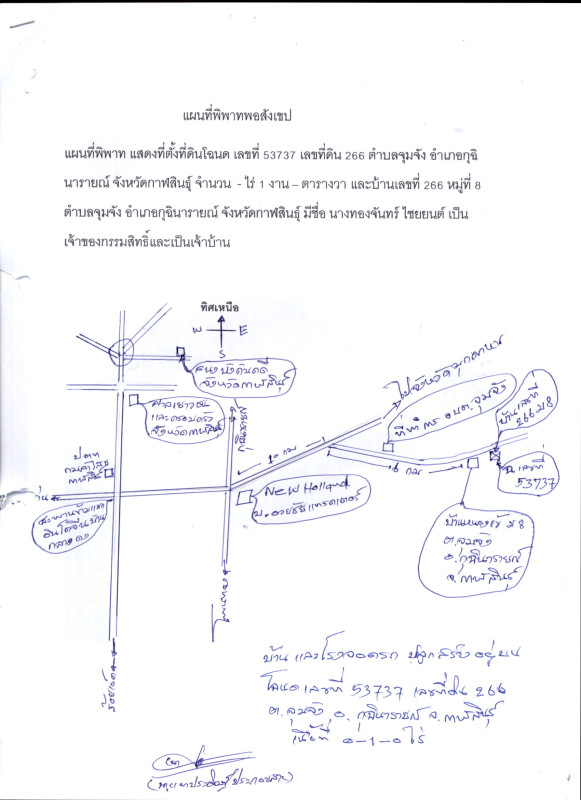 แผนที่พิพาทพอสังเขป
แผนที่พิพาท แสดงที่ตั้งที่ดินโฉนด เลขที่ 53737 เลขที่ดิน 266 ตำบลจุมจัง อำเภอกุฉิ
นารายณ์ จังหวัดกาฬสินธุ์ จำนวน - ไร่ 1 งาน – ตารางวา และบ้านเลขที่ 266 หมู่ที่ 8
ตำบลจุมจัง อำเภอกุฉินารายณ์ จังหวัดกาฬสินธุ์ มีชื่อ นางทองจันทร์ ไชยยนต์ เป็น
เจ้าของกรรมสิทธิ์และเป็นเจ้าบ้าน
ทิศเหนือ
W E
S
จังหวัดกาฬสินธุ์
ไปจังหวัดมุกดาหาร
ที่ทำการ อบต.จุมจัง
บ้านเลขที่
266 ม 8
และครอบครัว
จังหวัดกาฬสินธุ์
10 กม
6 กม
ฉ.เลขที่
53737
New Holland
ม 8
ต.จุมจัง
อ.กุฉินารายณ์
จ.กาฬสินธุ์
ร้อยเอ็ด
บ้าน และโรงจอดรถ ปลูกสร้างอยู่บน
โฉนดเลขที่ 53737 เลขที่ดิน 266
ต.จุมจัง อ.กุฉินารายณ์ จ.กาฬสินธุ์
เนื้อที่ 0-1-0 ไร่